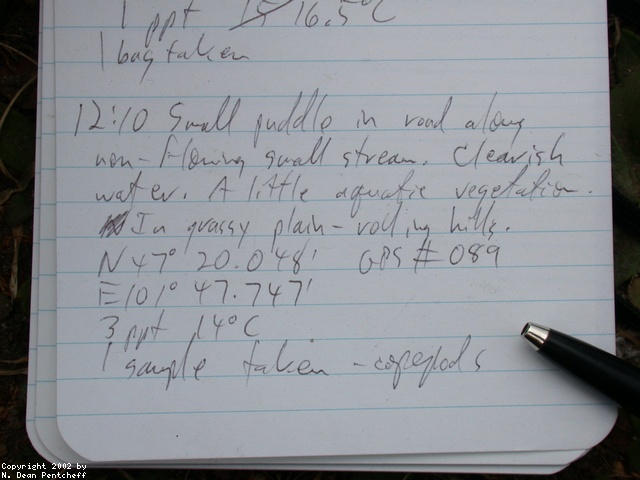 1 ppt 16.5°C
1 bag taken
12:10 Small puddle in road along
non-flowing small stream. Clearish
water. A little aquatic vegetation.
In grassy plain - rolling hills.
N 47° 20.048' GPS # 089
E 101° 47.747'
3 ppt 14°C
1 sample taken - copepods
Copyright 2002 by
N. Dean Pentcheff